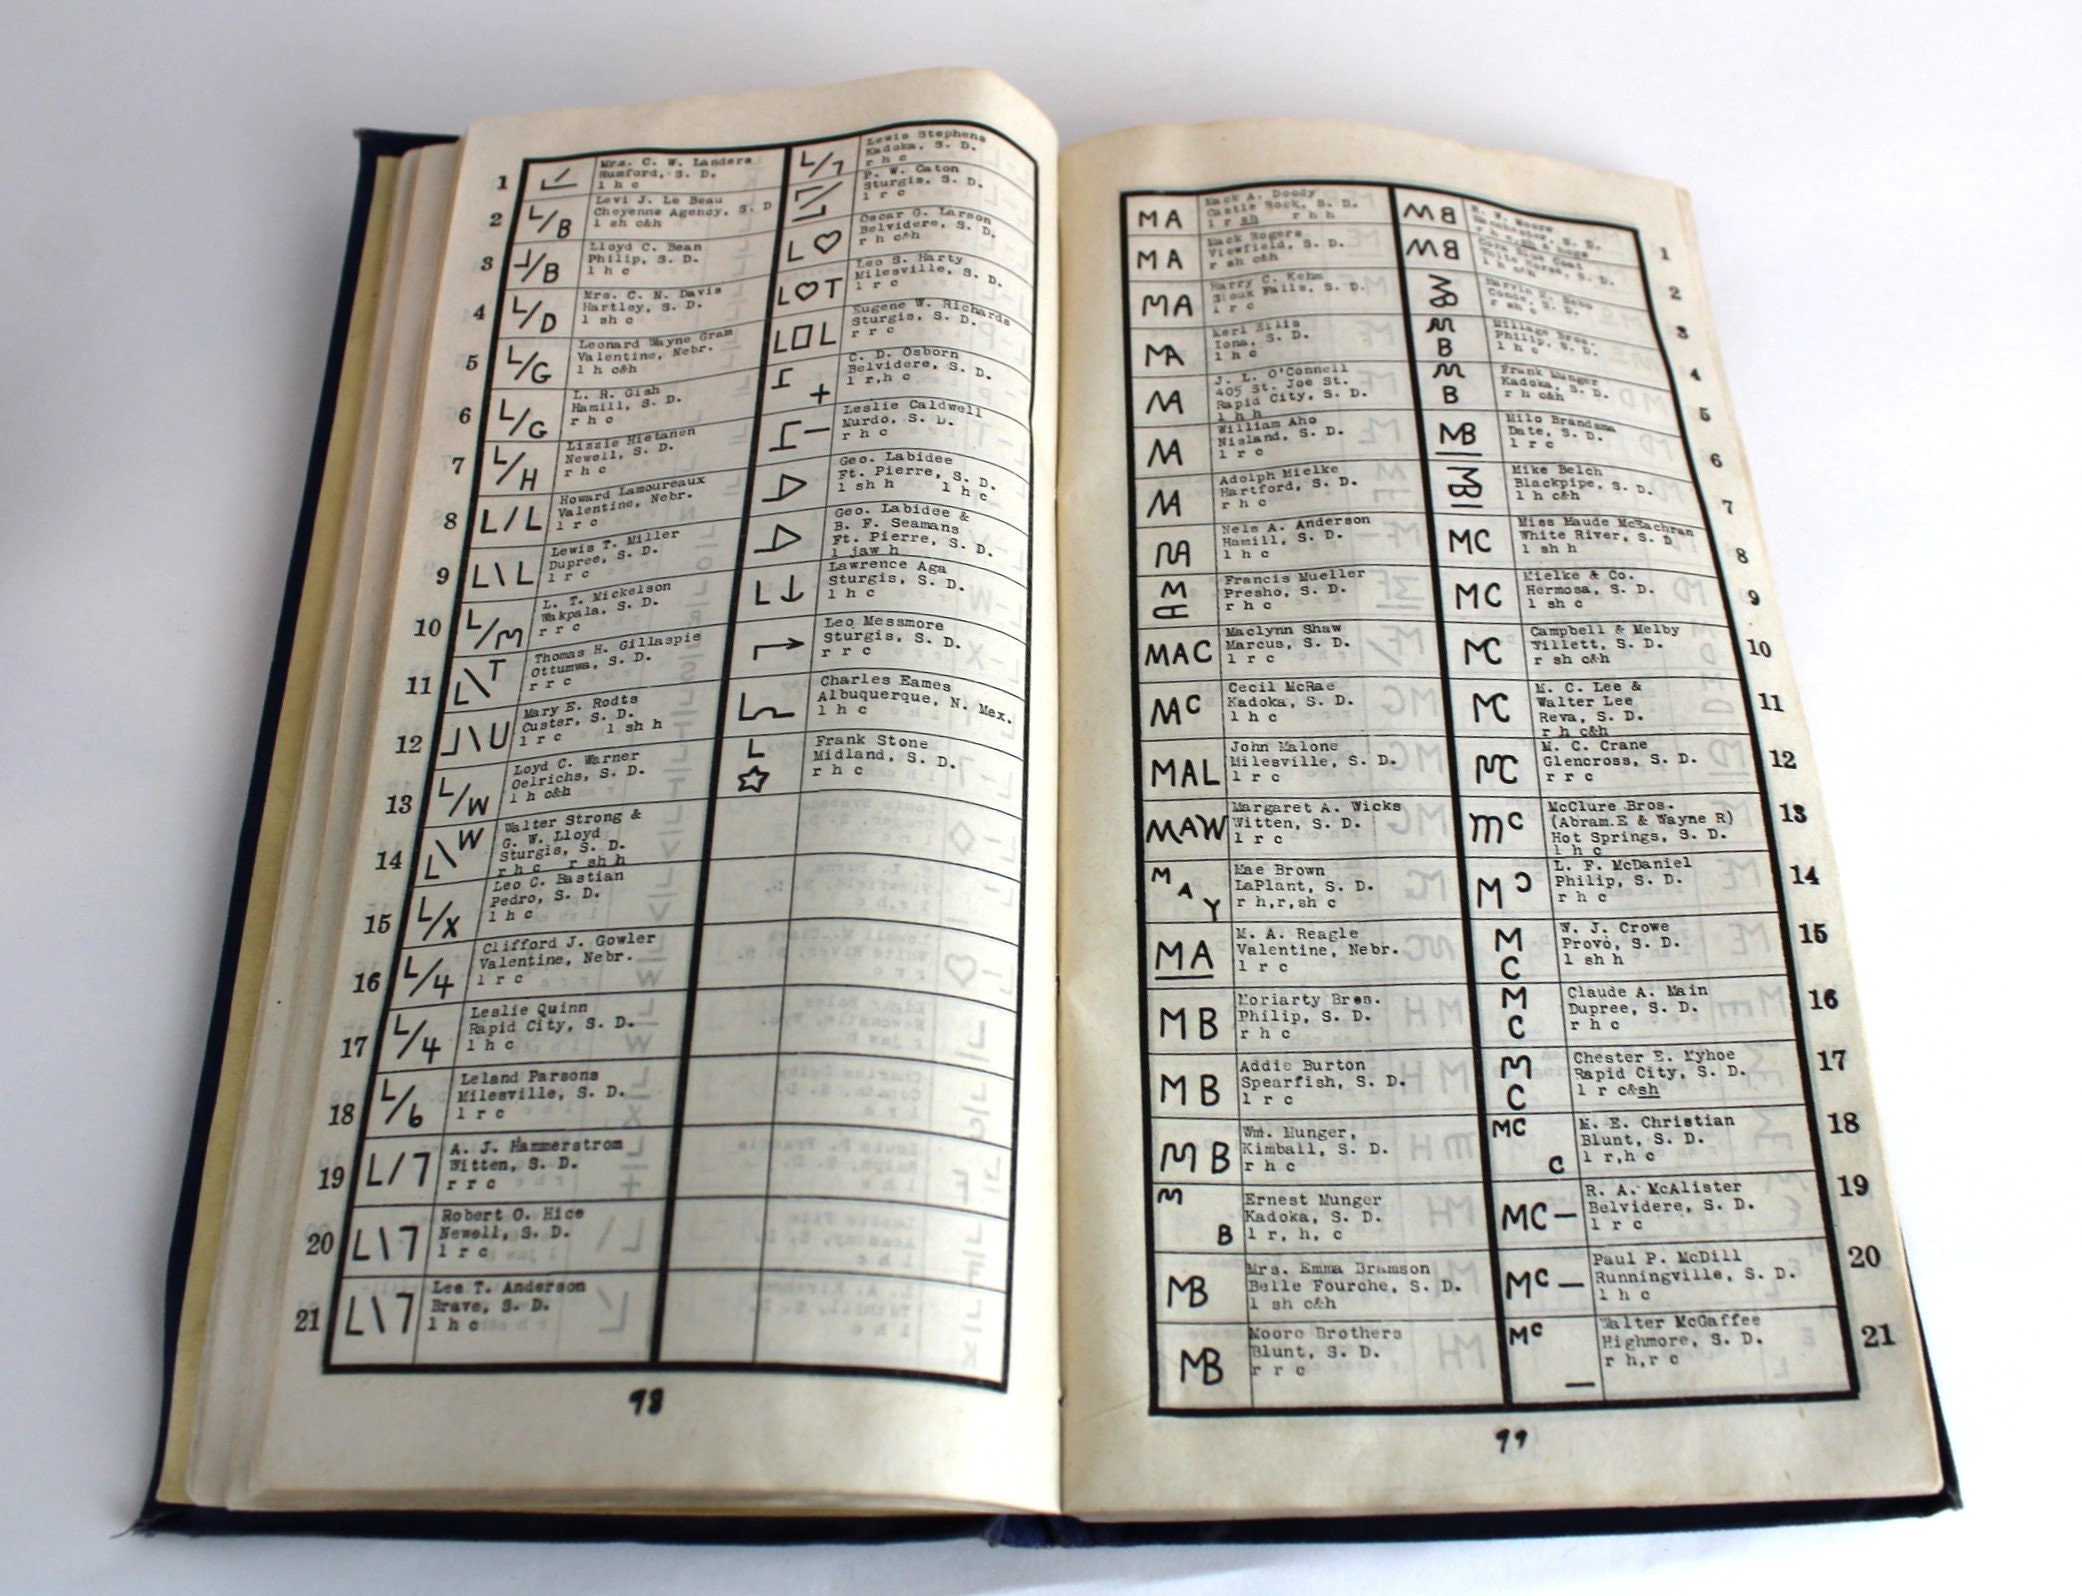 1
Mrs. C. W. Landers
Rumford, S. D.
l h c
2
L/B
Levi J. Le Beau
Cheyenne Agency, S. D
l sh c&h
3
/B
Lloyd C. Bean
Philip, S. D.
l h c
4
L/D
Mrs. C. N. Davis
Hartley, S. D.
l sh c
5
L/G
Leonard Wayne Gram
Valentine, Nebr.
l h c&h
6
L/G
L. R. Gish
Hamill, S. D.
r h c
7
L/H
Lizzie Hietanen
Newell, S. D.
r h c
8
L/L
Howard Lamoureaux
Valentine, Nebr.
l r c
9
L\L
Lewis T. Miller
Dupree, S. D.
l r c
10
L/M
L. T. Mickelson
Wakpala, S. D.
r r c
11
L\T
Thomas H. Gillaspie
Ottumwa, S. D.
r r c
12
\U
Mary E. Rodts
Custer, S. D.
l r c l sh h
13
L/W
Loyd C. Warner
Oelrichs, S. D.
l h c&h
14
L\W
Walter Strong &
G. W. Lloyd
Sturgis, S. D.
r h c r sh h
15
L/X
Leo C. Bastian
Pedro, S. D.
l h c
16
L/4
Clifford J. Gowler
Valentine, Nebr.
l r c
17
L/4
Leslie Quinn
Rapid City, S. D.
l h c
18
L/6
Leland Parsons
Milesville, S. D.
l r c
19
L/7
A. J. Hammerstrom
Witten, S. D.
r r c
20
L\7
Robert O. Hice
Newell, S. D.
l r c
21
L\7
Lee T. Anderson
Brave, S. D.
l h c
L/7
Lewis Stephens
Kadoka, S. D.
r h c
P. W. Caton
Sturgis, S. D.
l r c
L ♡
Oscar G. Larson
Belvidere, S. D.
r h c&h
L♡T
Leo S. Harty
Milesville, S. D.
l r c
L□L
Eugene W. Richards
Sturgis, S. D.
r r c
+
C. D. Osborn
Belvidere, S. D.
l r,h c
Leslie Caldwell
Murdo, S. D.
r h c
Geo. Labidee
Ft. Pierre, S. D.
l sh h l h c
Geo. Labidee &
B. F. Seamans
Ft. Pierre, S. D.
l jaw h
L ↓
Lawrence Aga
Sturgis, S. D.
l h c
Leo Messmore
Sturgis, S. D.
r r c
Charles Eames
Albuquerque, N. Mex.
l h c
L
☆
Frank Stone
Midland, S. D.
r h c
98
MA
Mack A. Doody
Castle Rock, S. D.
l r sh r h h
MA
Mack Rogers
Viewfield, S. D.
r sh c&h
MA
Harry C. Kehm
Sioux Falls, S. D.
l r c
MA
Kerl Ellis
Iona, S. D.
l h c
MA
J. L. O'Connell
405 St. Joe St.
Rapid City, S. D.
l h h
MA
William Aho
Nisland, S. D.
l r c
MA
Adolph Mielke
Hartford, S. D.
r h c
MA
Nels A. Anderson
Hamill, S. D.
l h c
M
A
Francis Mueller
Presho, S. D.
r h c
MAC
Maclynn Shaw
Marcus, S. D.
l r c
MAC
Cecil McRae
Kadoka, S. D.
l h c
MAL
John Malone
Milesville, S. D.
l r c
MAW
Margaret A. Wicks
Witten, S. D.
l r c
M
A
Y
Mae Brown
LaPlant, S. D.
r h,r,sh c
MA
M. A. Reagle
Valentine, Nebr.
l r c
MB
Moriarty Bros.
Philip, S. D.
r h c
MB
Addie Burton
Spearfish, S. D.
l r c
MB
Wm. Munger,
Kimball, S. D.
r h c
M
B
Ernest Munger
Kadoka, S. D.
l r, h, c
MB
Mrs. Emma Bramson
Belle Fourche, S. D.
l sh c&h
MB
Moore Brothers
Blunt, S. D.
r r c
MB
Moore
S. D.
1
MB
Coat
White Horse, S. D.
l h c&h
2
MB
S. D.
r sh c
3
M
B
Millage Bros.
Philip, S. D.
l h c
4
M
B
Frank Munger
Kadoka, S. D.
r h c&h
5
MB
Milo Brandsma
Date, S. D.
l r c
6
MB
Mike Belch
Blackpipe, S. D.
l h c&h
7
MC
Miss Maude McEachran
White River, S. D
l sh h
8
MC
Mielke & Co.
Hermosa, S. D.
l sh c
9
MC
Campbell & Melby
Willett, S. D.
r sh c&h
10
MC
M. C. Lee &
Walter Lee
Reva, S. D.
r h c&h
11
MC
M. C. Crane
Glencross, S. D.
r r c
12
MC
McClure Bros.
(Abram.E & Wayne R)
Hot Springs, S. D.
l h c
13
M
L. F. McDaniel
Philip, S. D.
r h c
14
M
C
W. J. Crowe
Provo, S. D.
l sh h
15
M
C
Claude A. Main
Dupree, S. D.
r h c
16
M
C
Chester E. Kyhoe
Rapid City, S. D.
l r c&sh
17
MC
C
M. E. Christian
Blunt, S. D.
l r,h c
18
MC—
R. A. McAlister
Belvidere, S. D.
l r c
19
Mc—
Paul P. McDill
Runningville, S. D.
l h c
20
Mc
—
Walter McGaffee
Highmore, S. D.
r h,r c
21
99